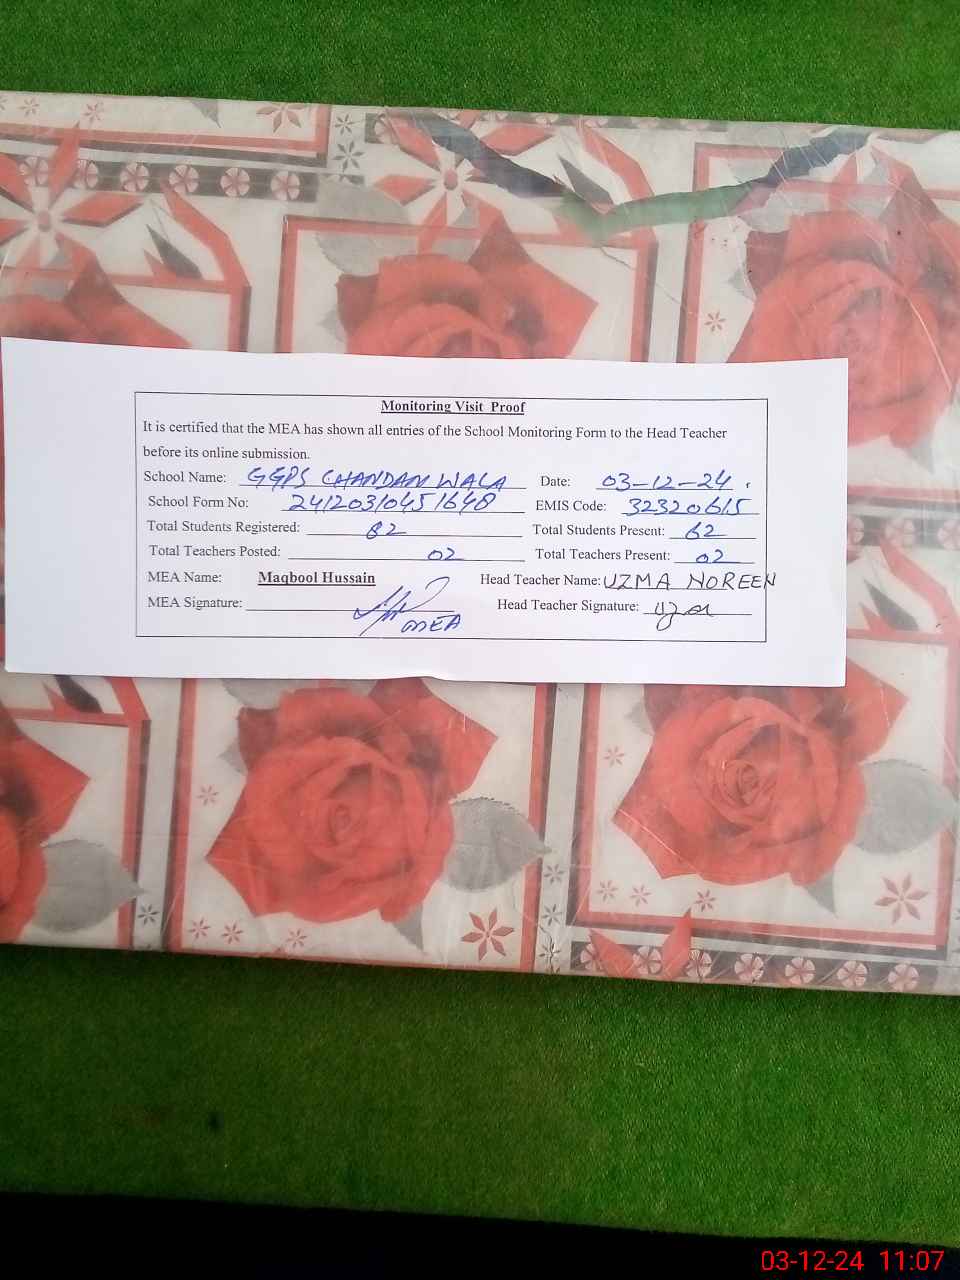 Monitoring Visit Proof
It is certified that the MEA has shown all entries of the School Monitoring Form to the Head Teacher
before its online submission.
School Name: GGPS CHANDAN WALA Date: 03-12-24
School Form No: 24120310451648 EMIS Code: 32320615
Total Students Registered: 82 Total Students Present: 62
Total Teachers Posted: 02 Total Teachers Present: 02
MEA Name: Maqbool Hussain Head Teacher Name: UZMA NOREEN
MEA Signature: MEA Head Teacher Signature:
03-12-24 11:07